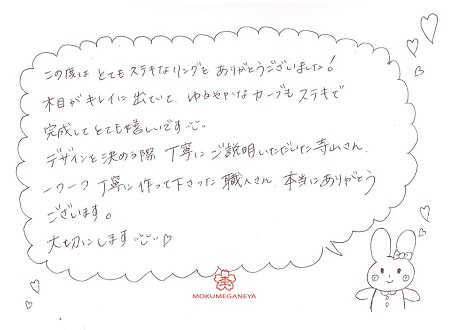 この度は とてもステキなリングを ありがとうございました!
木目がキレイに 出ていて、ゆるやかなカーブもステキで
完成して とても嬉しいです
デザインを決める際 丁寧にご説明いただいた寺山さん、
一つ一つ 丁寧に作って下さった 職人さん、本当にありがとう
ございます。
大切にします ♡
MOKUMEGANEYA